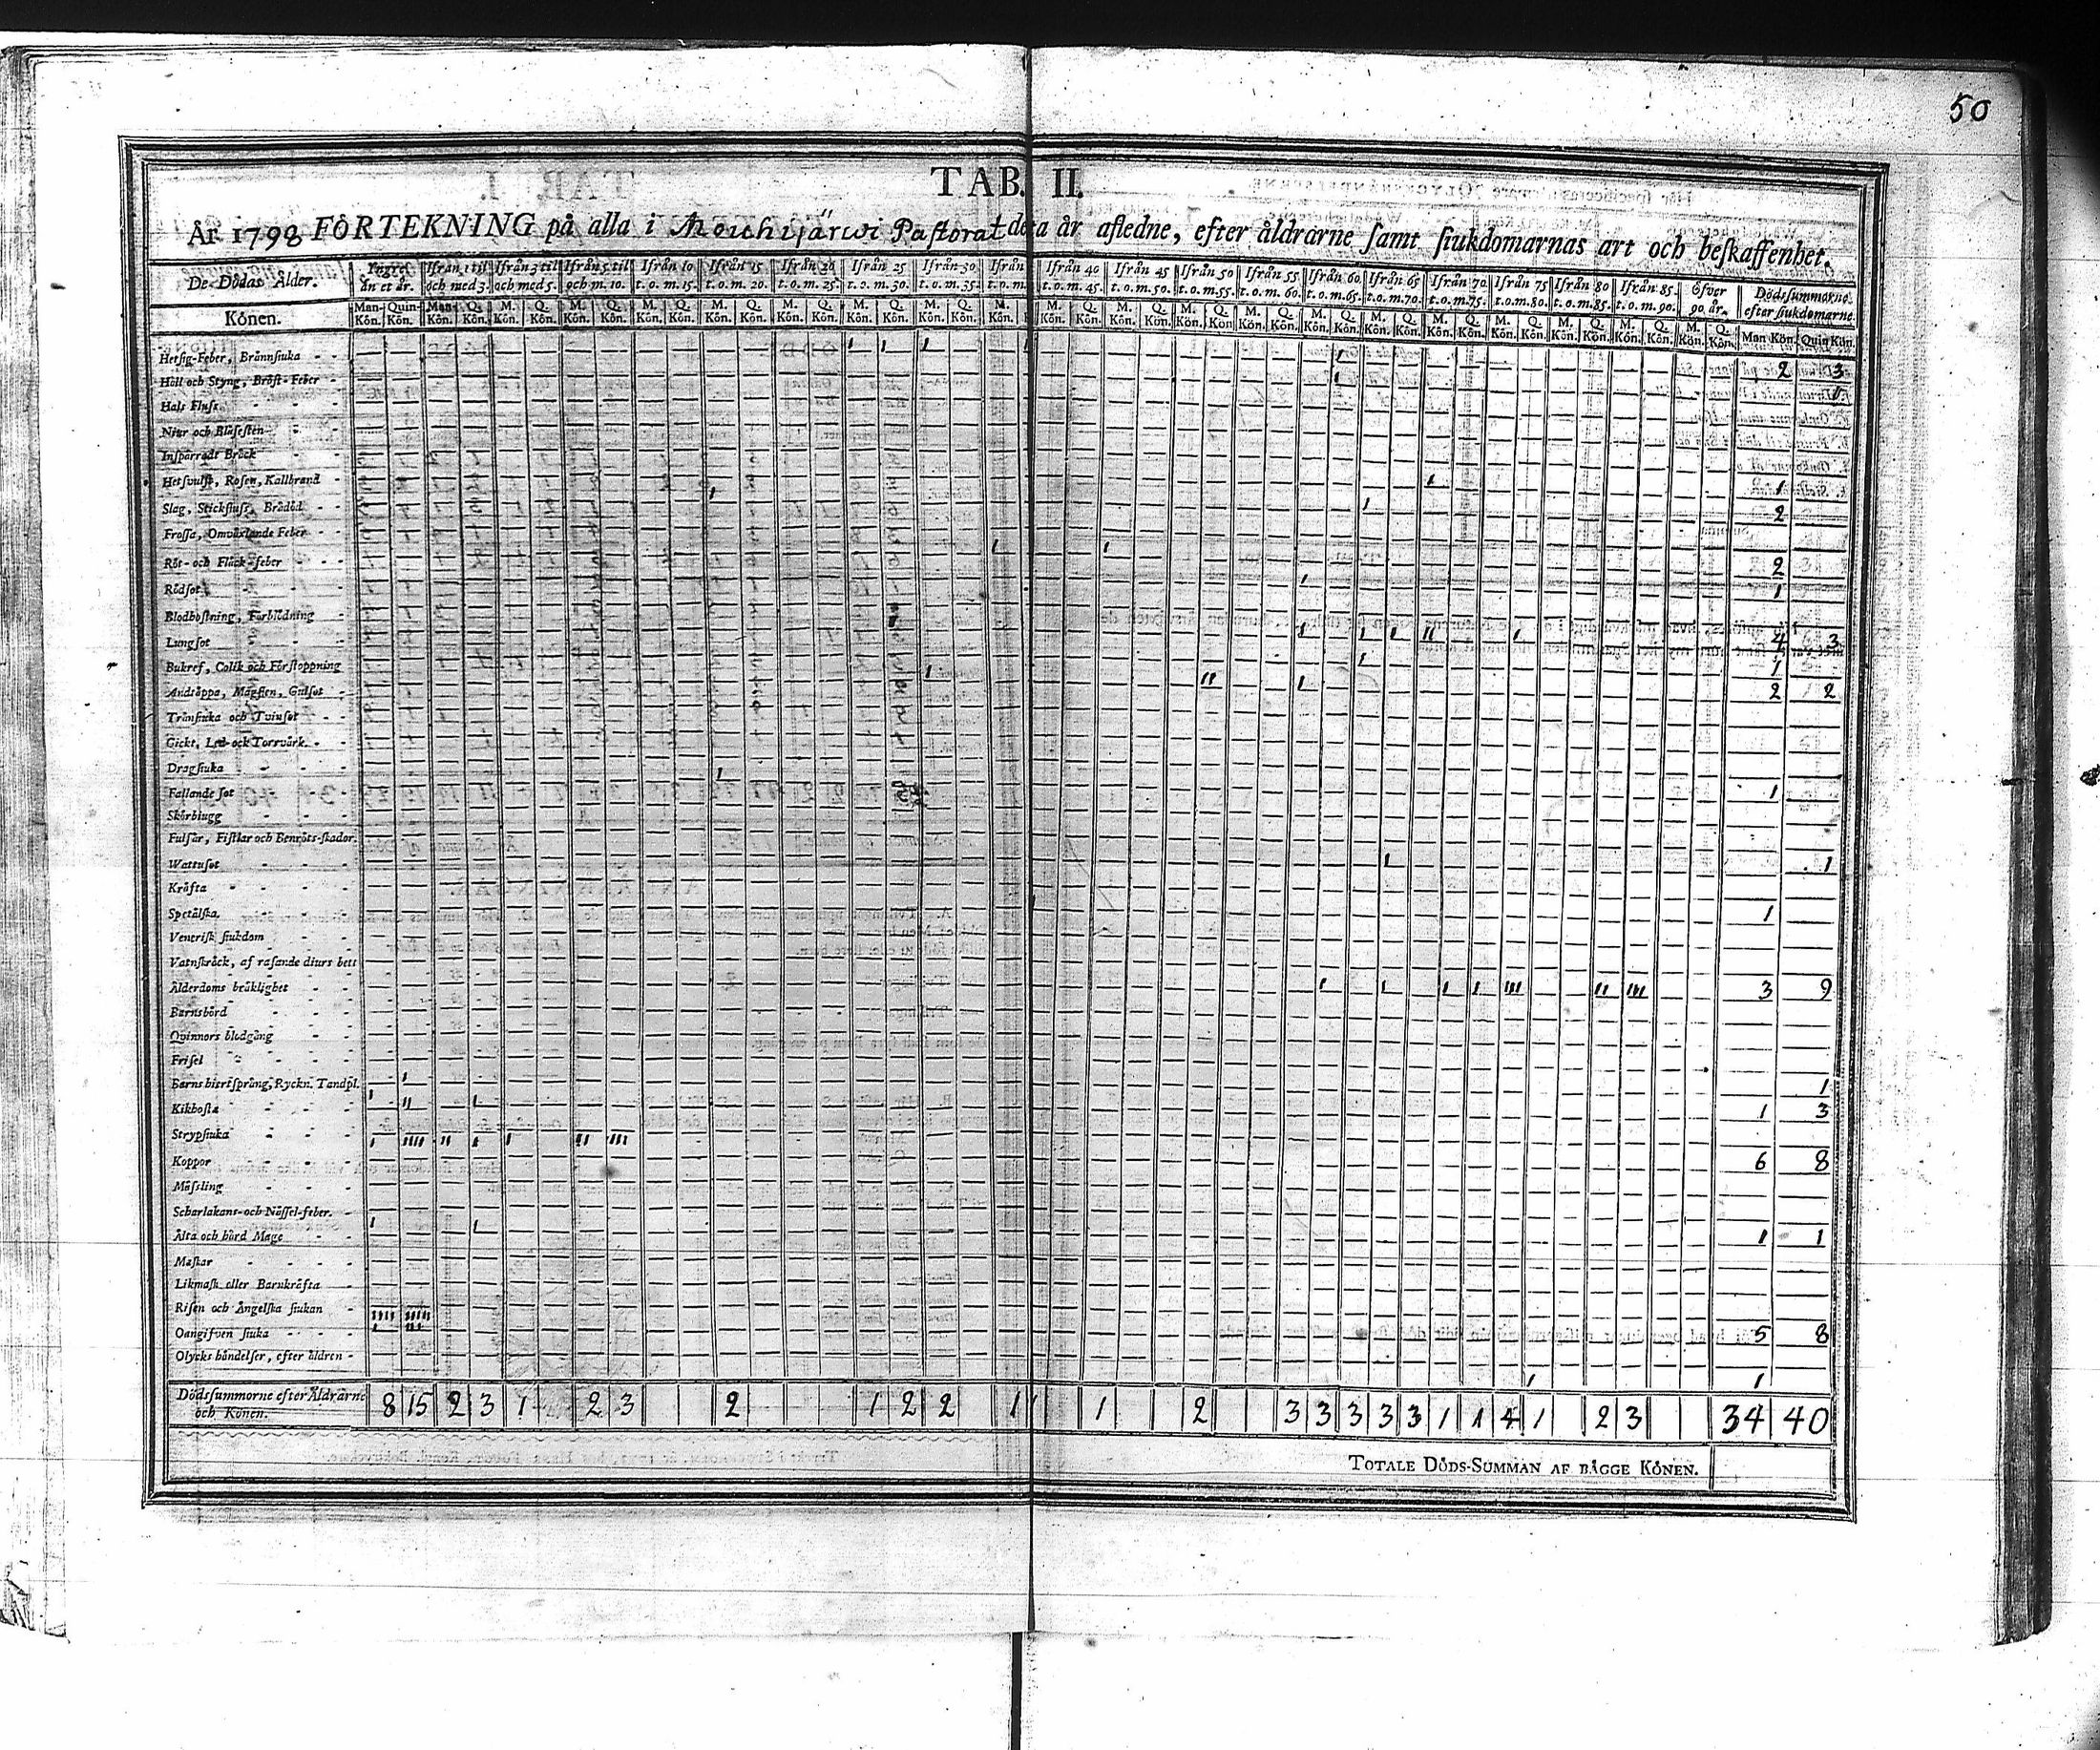 50
TAB. II.
År 1798 FÖRTEKNING på alla i Moichijärwi Pastorat detta år afledne, efter åldrarne samt siukdomarnas art och beskaffenhet.
De Dödas Ålder. Yngre än et år. Ifrån 1 til och med 3. Ifrån 3 til och med 5. Ifrån 5 til och m. 10. Ifrån 10 t. o. m. 15. Ifrån 15 t. o. m. 20. Ifrån 20 t. o. m. 25. Ifrån 25 t. o. m. 30. Ifrån 30 t. o. m. 35. Ifrån t. o. m. Ifrån 40 t. o. m. 45. Ifrån 45 t. o. m. 50. Ifrån 50 t. o. m. 55. Ifrån 55 t. o. m. 60. Ifrån 60 t. o. m. 65. Ifrån 65 t. o. m. 70. Ifrån 70 t. o. m. 75. Ifrån 75 t. o. m. 80. Ifrån 80 t. o. m. 85. Ifrån 85 t. o. m. 90. Öfver 90 år. Dödssummorne efter siukdomarne.
Könen. Man-Kön. Quin-Kön. Man-Kön. Q. Kön. M. Kön. Q. Kön. M. Kön. Q. Kön. M. Kön. Q. Kön. M. Kön. Q. Kön. M. Kön. Q. Kön. M. Kön. Q. Kön. M. Kön. Q. Kön. M. Kön. Kön. Q. Kön. M. Kön. Q. Kön. M. Kön. Q. Kön. M. Kön. Q. Kön. M. Kön. Q. Kön. M. Kön. Q. Kön. M. Kön. Q. Kön. M. Kön. Q. Kön. M. Kön. Q. Kön. M. Kön. Q. Kön. M. Kön. Q. Kön. Man Kön. Quin Kön.
Hetsig-Feber, Brännsiuka - - 1 1 1 1 2 3
Håll och Styng, Bröst-Feber - 1 1
Hals Fluss - - -
Niur och Blåsesten - -
Inspärradt Bråck - -
Hetsvulst, Rosen, Kallbrand - 1 1
Slag, Stickfluss, Brådöd - - 1 1 2
Frossa, Omväxlande Feber - -
Röt- och Fläck-feber - - - 1 1 2
Rödsot - - - 1 1
Blodhostning, Förblödning -
Lungsot - - - 1 1 1 11 1 4 3
Bukref, Colik och Förstoppning 1 1
Andtäppa, Mägtien, Gulsot - 1 11 1 2 2
Trånsiuka och Tvinsot - -
Gickt, Led- och Torrvärk - -
Dragsiuka - - - -
Fallande sot - - - 1 1
Skörbiugg - - - -
Fulsår, Fistlar och Benröts-skador.
Wattusot - - - 1 1
Kräfta - - - -
Spetälska. - - - 1
Venerisk siukdom - -
Vatnskräck, af rasande diurs bett
Ålderdoms bräklighet - - 1 1 1 1 1111 11 111 3 9
Barnsbörd - - -
Qvinnors blodgång - -
Frisel - - - -
Barns hiertsprång, Ryckn. Tandpl. 1 1
Kikhosta - - - 1 11 1 1 3
Strypsiuka - - -
Koppor - - - 1 1111 11 1 1 11 111 6 8
Mässling - - -
Scharlakans- och Nässel-feber. -
Älta och hård Mage - - 1 1 1 1
Maskar - - - -
Likmask eller Barnkräfta -
Risen och Ängelska siukan -
Oangifven siuka - - - 5 8
Olycks händelser, efter åldren - 1 1
Dödssummorne efter Åldrarne och Könen. 8 15 2 3 1 2 3 2 1 2 2 1 1 2 3 3 3 3 3 1 1 4 1 2 3 34 40
TOTALE DÖDS-SUMMAN AF BÄGGE KÖNEN.